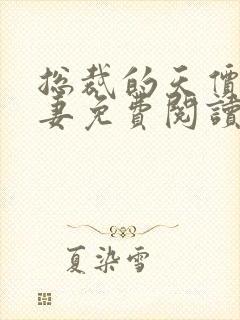 总裁的天價
妻免費閱讀
夏染雪